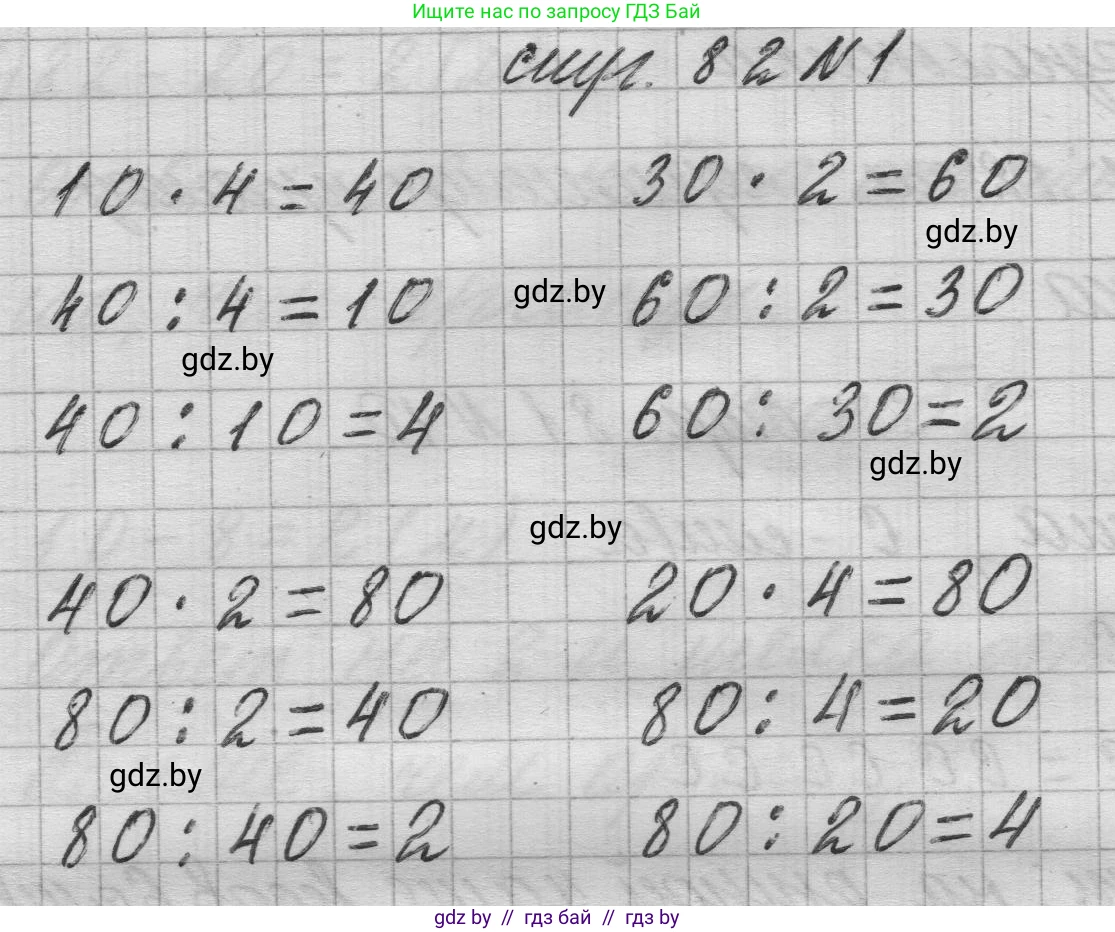 Ищите нас по запросу ГДЗ Бай
стр. 82 N 1
10 · 4 = 40 30 · 2 = 60
gdz.by
40 : 4 = 10 gdz.by 60 : 2 = 30
gdz.by
40 : 10 = 4 60 : 30 = 2
gdz.by
gdz.by
40 · 2 = 80 20 · 4 = 80
80 : 2 = 40 80 : 4 = 20
gdz.by
80 : 40 = 2 80 : 20 = 4
gdz by // гдз бай // гдз by